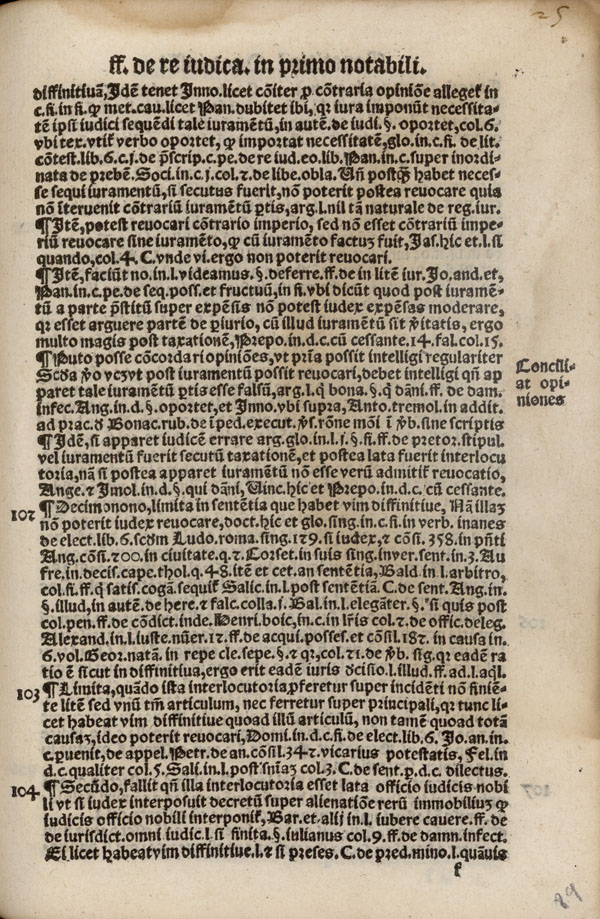 25
ff. de re iudica. in primo notabili.
diffinitiuā, Idē tenet Inno. licet cōiter ꝓ cōtraria opiniōe allegeꝶ in
c. fi. in fi. ꝙ met. cau. licet Pan. dubitet ibi, qꝛ iura imponūt necessita-
tē ipsi iudici sequēdi tale iuramētū, in autē. de iudi. §. oportet, col. 6.
vbi tex. vtiꝶ verbo oportet, ꝙ importat necessitatē, glo. in c. fi. de lit.
cōtest. lib. 6. c. j. de p̄scrip. c. pe. de re iud. eo. lib. Pan. in c. super inordi-
nata de prebē. Soci. in c. j col. ⁊. de libe. obla. Uñ postꝙ̄ habet neces-
se sequi iuramentū, si secutus fuerit, nō poterit postea reuocare quia
nō īteruenit cōtrariū iuramētū ꝑtis, arg. l. nil tā naturale de reg. iur.
¶ Itē, potest reuocari cōtrario imperio, sed nō esset cōtrariū impe-
riū reuocare sine iuramēto, ꝙ cū iuramēto factuꝫ fuit, Jas. hic et. l. si
quando, col. 4. C. vnde vi. ergo non poterit reuocari.
¶ Itē, faciūt no. in l. videamus. §. deferre. ff. de in litē iur. Jo. and. et,
Pan. in c. pe. de seq. poss. et fructuū, in fi. vbi dicūt quod post iuramē-
tū a parte p̄stitū super expēsis nō potest iudex expēsas moderare,
qꝛ esset arguere partē de ꝑiurio, cū illud iuramētū sit v̄itatis, ergo
multo magis post taxationē, Prepo. in d. c. cū cessante. 14. fal. col. 15.
¶ Puto posse cōcordari opiniōes, vt pr̄ia possit intelligi regulariter
Scd̄a v̄o vcꝫ vt post iuramentū possit reuocari, debet intelligi qn̄ ap
paret tale iuramentū ꝑtis esse falsū, arg. l. q̄ bona. §. q̄ dāni. ff. de dam.
infec. Ang. in d. §. oportet, et Inno. vbi supra, Anto. tremol. in addit.
ad prac. d̄ Bonac. rub. de īped. execut. v̄s. rōne mōi ī v̄b. sine scriptis
¶ Idē, si apparet iudicē errare arg. glo. in. l. j. §. fi. ff. de pretor. stipul.
vel iuramentū fuerit secutū taxationē, et postea lata fuerit interlocu
toria, nā si postea apparet iuramētū nō esse verū admitiꝶ reuocatio,
Ange. ⁊ Imol. in. d. §. qui dāni, Uinc. hic et Prepo. in. d. c. cū cessante.
¶ Decimonono, limita in sentētia que habet vim diffinitiue, Nā illaꝫ
nō poterit iudex reuocare, doct. hic et glo. sing. in c. fi. in verb. inanes
de elect. lib. 6. scd̄m Ludo. roma. sing. 179. si iudex, ⁊ cōsi. 358. in pn̄ti
Ang. cōsi. ⁊00. in ciuitate. q. ⁊. Corset. in suis sing. in ver. sent. in 3. Au
fre. in decis. cape. thol. q. 48. itē et cet. an sentētia, Bald. in l. arbitro,
col. fi. ff. q̄ satis. cog. ā. sequiꝶ Salic. in l. post sentētiā. C. de sent. Ang. in.
§. illud, in autē. de here. ⁊ falc. colla. j. Bal. in l. elegāter. §. si quis post
col. pen. ff. de cōdict. inde. Henri. boic, in c. in lr̄is col. ⁊. de offic. deleg.
Alexand. in. l. iuste. nūer. 1⁊. ff. de acqui. posses. et cōsil. 18⁊. in causa in.
6. vol. Geor. natā. in repe cle. sepe. §. ⁊ qꝛ, col. ⁊1. de v̄b. sig. qꝛ eadē ra
tio ē sicut in diffinitiua, ergo erit eadē iuris d̄cisio. l. illud. ff. ad. l. aql̄.
¶ Limita, quādo ista interlocutoria ꝓferetur super incidēti nō finiē-
te litē sed vnū tm̄ articulum, nec ferretur super principali, qꝛ tunc li-
cet habeat vim diffinitiue quoad illū articulū, non tamē quoad totā
causaꝫ, ideo poterit reuocari, Domi. in d. c. fi. de elect. lib. 6. Jo. an. in.
c. ꝑuenit, de appel. Petr. de an. cōsil. 34⁊. vicarius potestatis, Fel. in
d. c. qualiter col. 5. Sali. in. l. post sn̄iaꝫ col. 3. C. de sent. ꝑ. d. c. dilectus.
¶ Secūdo, fallit qn̄ illa interlocutoria esset lata officio iudicis nobi
li vt si iudex interposuit decretū super alienatiōe rerū immobiliuꝫ ꝙ
iudicis officio nobili interponiꝶ, Bar. et alij in l. iubere cauere. ff. de
de iurisdict. omni iudic. l si finita. §. iulianus col. 9. ff. de damn. infect.
Et licet habeat vim diffinitiue. l. ⁊ si preses. C. de pred. mino. l. quāuis
f
Concili-
at opi-
niones
102
103
104
29